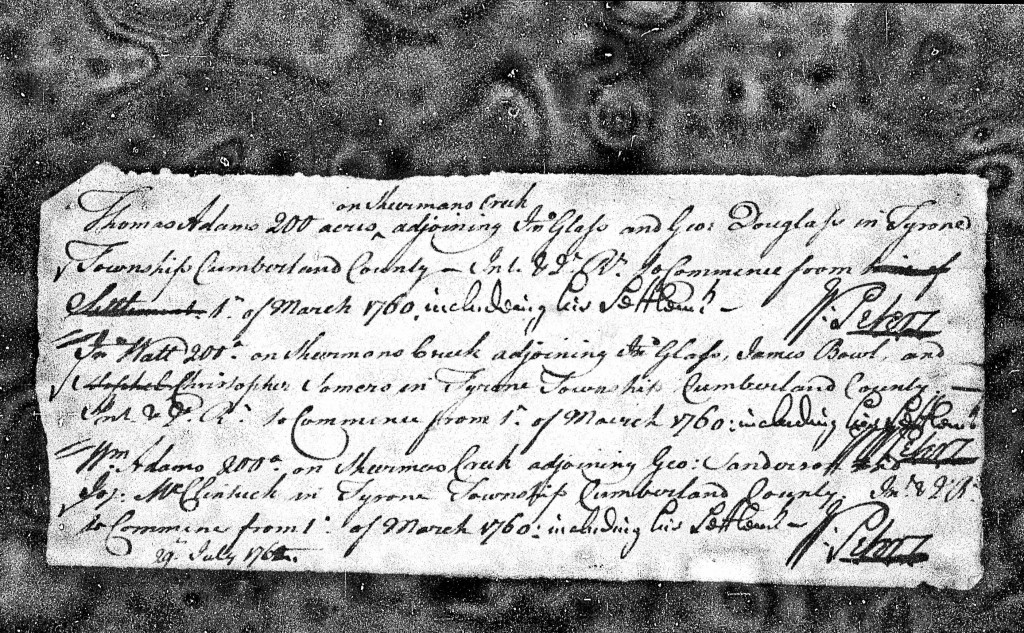 on Shermans Creek
Thomas Adams 200 acres ^ adjoining Jno Glass and Geo: Douglass in Tyrone
Township Cumberland County – Int. & Qt. Rt. to Commence from time of
Settlement 1st. of March 1760, including his Settlemt –
W: Peters
Jno Watt 200a. on Shermans Creek adjoining Jno Glass, James Bowl, and
Christopher Somers in Tyrone Township Cumberland County –
Int. & Qt. Rt. to Commence from 1st. of March 1760: including his Settlemt
W Peters
Wm Adams 200a. on Shermans Creek adjoining Geo: Sanderson and
Jos: McClintuck in Tyrone Township Cumberland County. Int. & Qt. Rt.
to Commence from 1st. of March 1760: including his Settlemt –
W: Peters
July